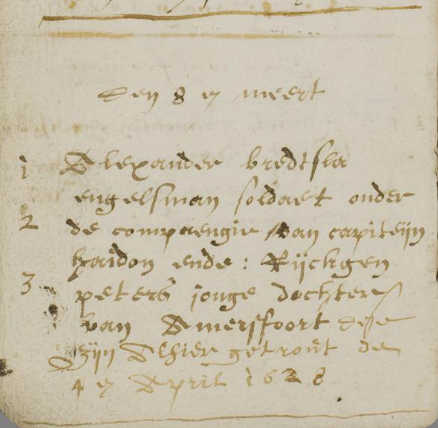 den 8 en meert
1 Alexander bredtsla
engelsman soldaet onder
2 de compaengie van capiteijn
haidon ende : Rijckgen
3 peters jonge dochter
van Amersfoort dese
zijn Alhier getrout de
4 en April 1628